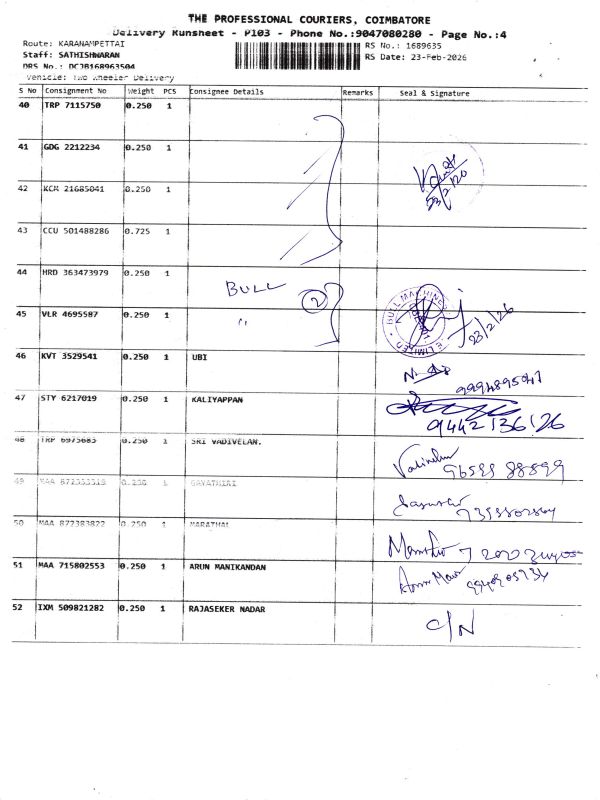 THE PROFESSIONAL COURIERS, COIMBATORE
Delivery Runsheet - P103 - Phone No.:9047080280 - Page No.:4
Route: KARANAMPETTAI
RS No.: 1689635
Staff: SATHISHWARAN
RS Date: 23-Feb-2026
DRS No.: DCJB168963504
Vehicle: Two Wheeler Delivery
S No Consignment No Weight PCS Consignee Details Remarks Seal & Signature
40 TRP 7115750 0.250 1
41 GDG 2212234 0.250 1
42 KCM 21685041 0.250 1
43 CCU 501488286 0.725 1
44 HRD 363473979 0.250 1 BULL 2
45 VLR 4695587 0.250 1 " 23/2/26
BULL MACHINES LIMITED
46 KVT 3529541 0.250 1 UBI
47 STY 6217019 0.250 1 KALIYAPPAN 9442136126
48 TRP 6975683 0.250 1 SRI VADIVELAN.
49 MAA 0.250 1
50 MAA 872383822 0.250 1 MARATHAL
51 MAA 715802553 0.250 1 ARUN MANIKANDAN
52 IXM 509821282 0.250 1 RAJASEKER NADAR C/N